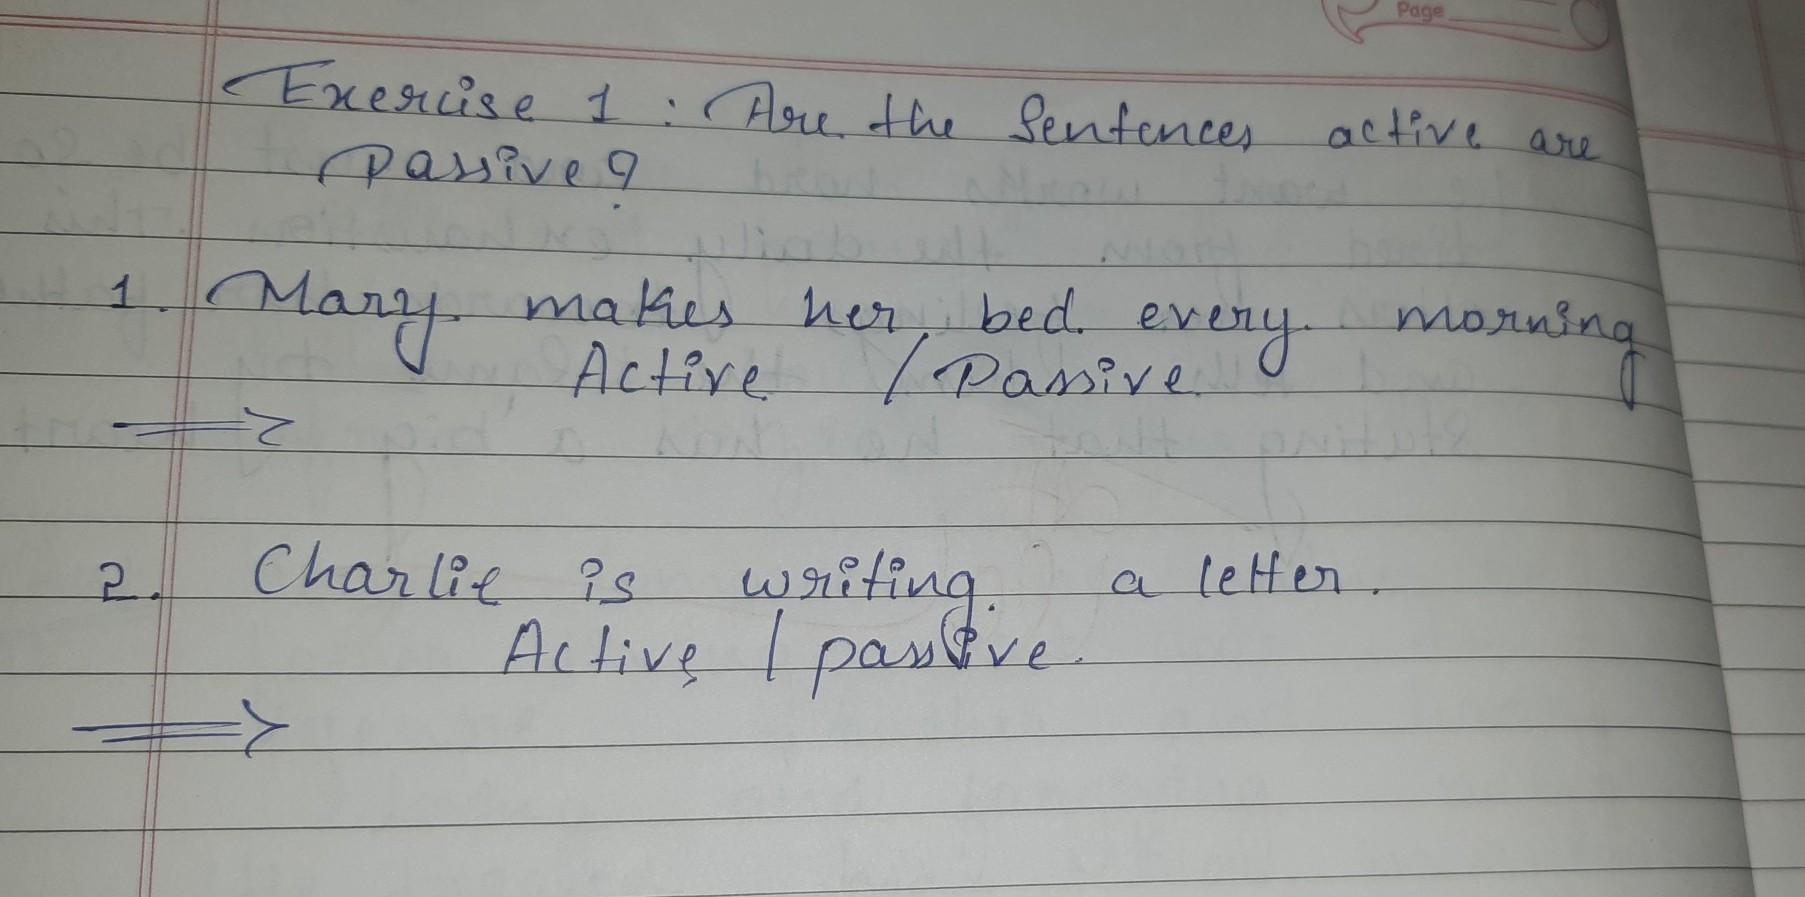 Page
Exercise 1 : Are the Sentences active are
passive?
1. Mary makes her bed every morning
Active / Passive
⇒
2. Charlie is writing a letter.
Active / passive.
⇒